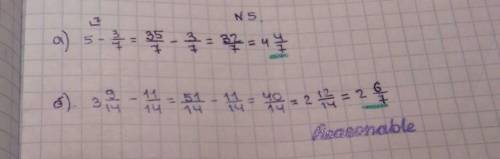 N 5.
7
а) 5 - 3/7 = 35/7 - 3/7 = 32/7 = 4 4/7
б). 3 9/14 - 11/14 = 51/14 - 11/14 = 40/14 = 2 12/14 = 2 6/7
Reasonable